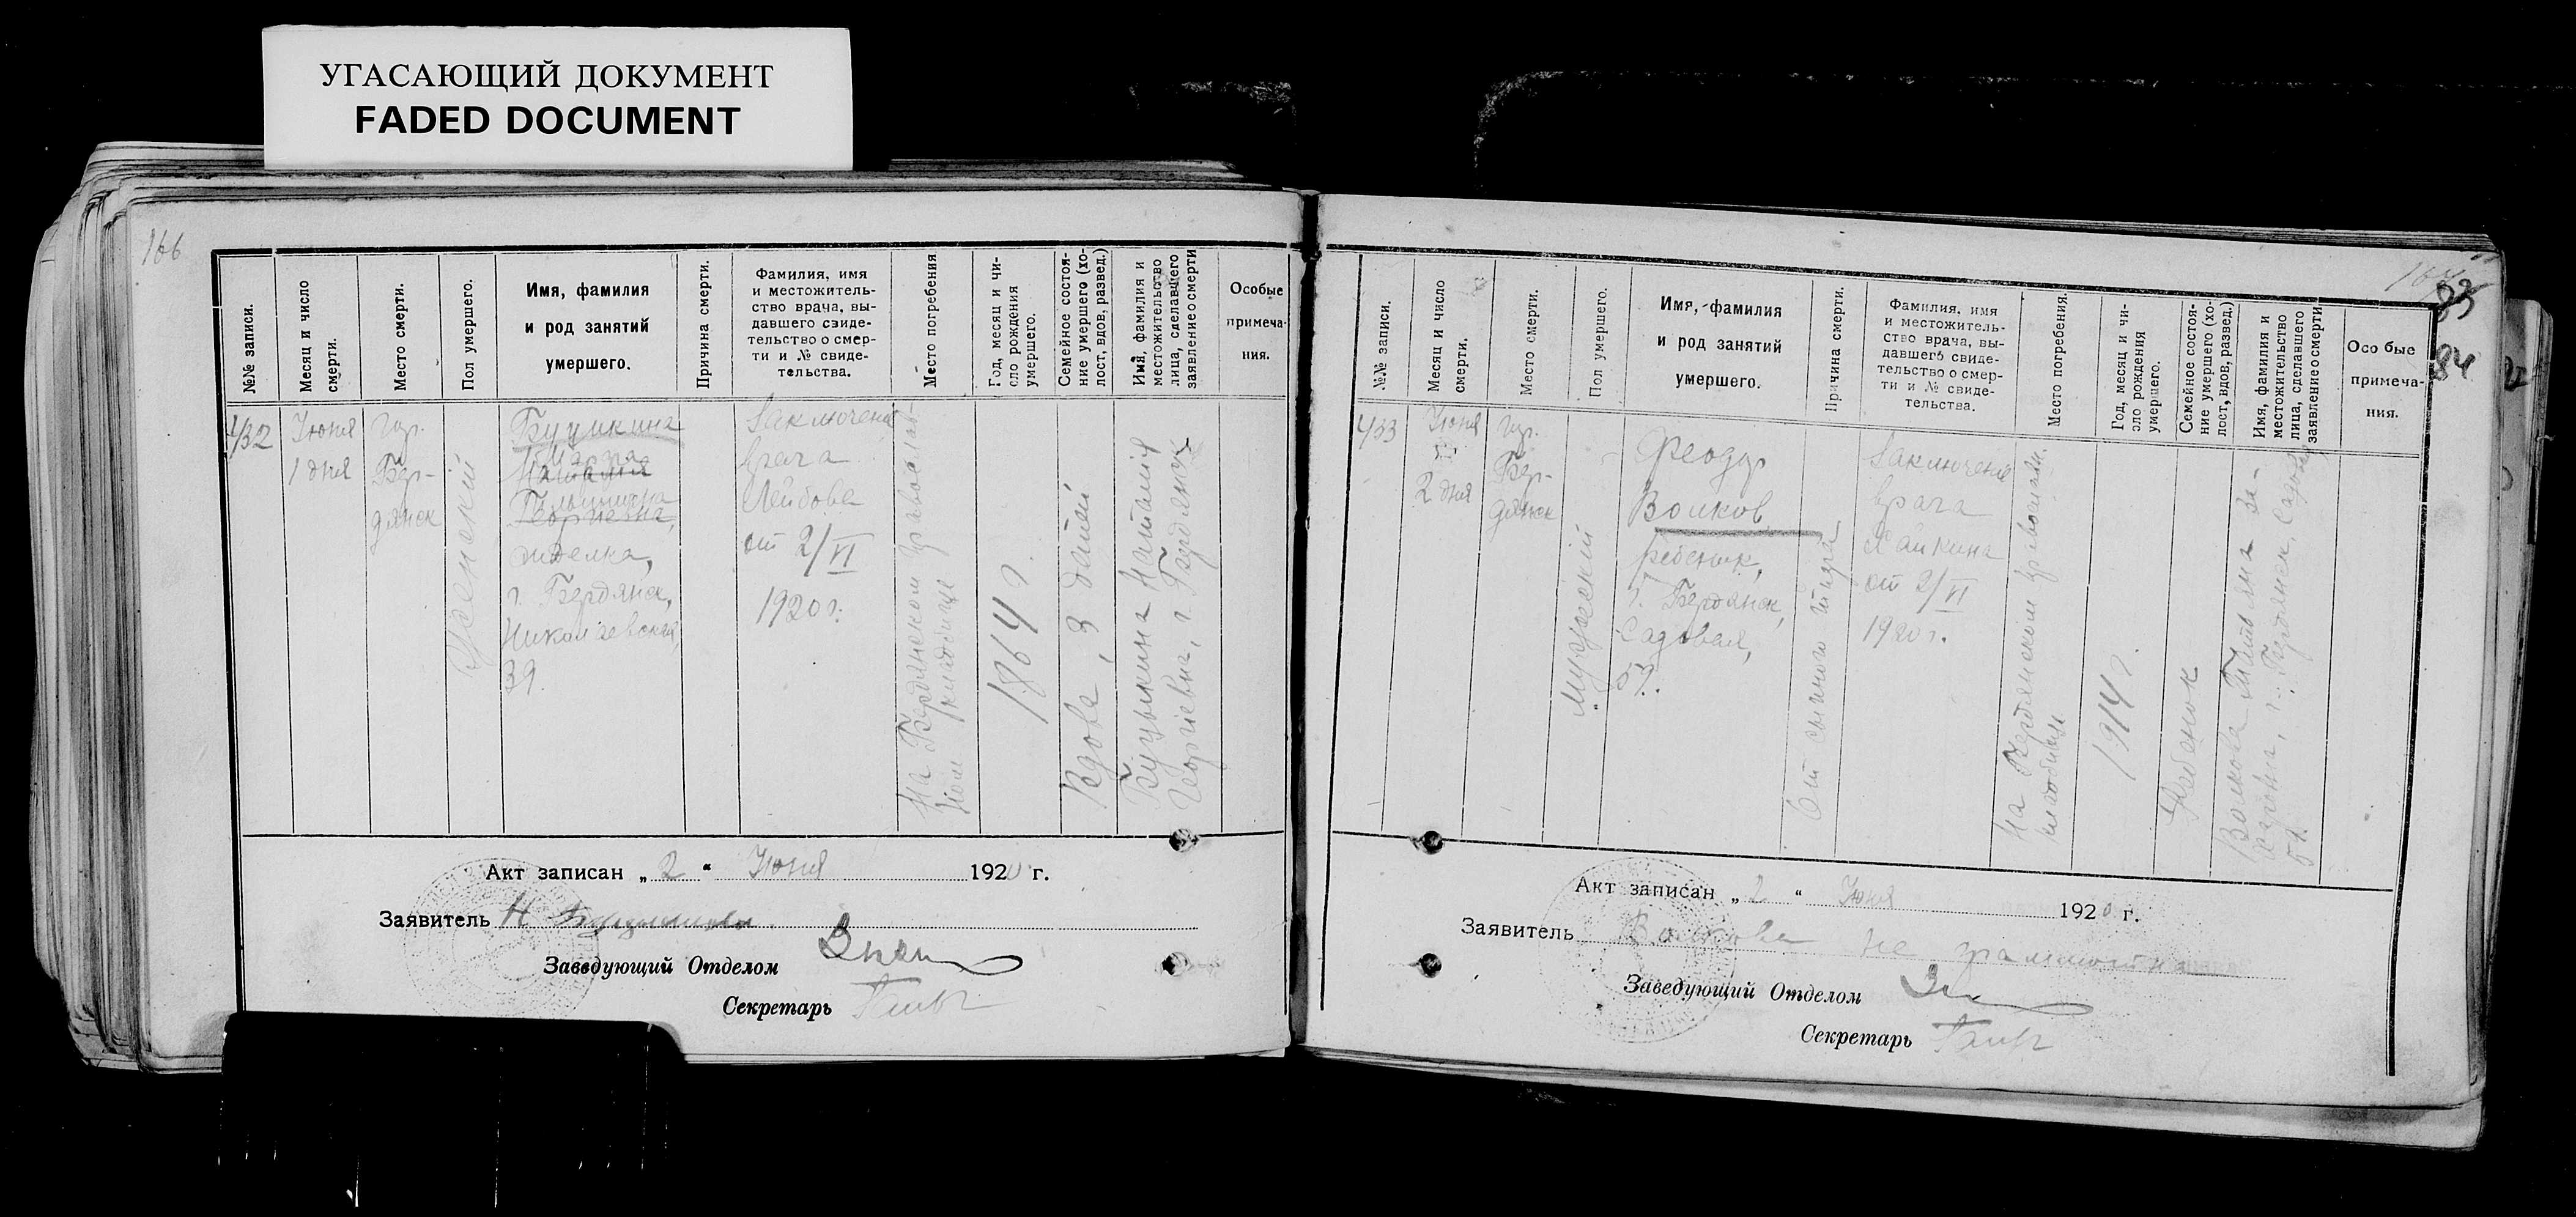 УГАСАЮЩИЙ ДОКУМЕНТ
FADED DOCUMENT
166
№№ записи.
Месяц и число
смерти.
Место смерти.
Пол умершего.
Имя, фамилия
и род занятий
умершего.
Причина смерти.
Фамилия, имя
и местожитель-
ство врача, вы-
давшего свиде-
тельство о смер-
ти и № свиде-
тельства.
Место погребения.
Год, месяц и чи-
сло рождения
умершего.
Семейное состоя-
ние умершего (хо-
лост, вдов, развед.)
Имя, фамилия и
местожительство
лица, сделавшего
заявление о смерти
Особые
примеча-
ния.
432
Июня
1 дня
Гор.
Бер-
дянск
Женский
Буцикина
Марфа
Наталия
Георгиевна,
г. Бердянск,
Николаевская,
39.
Заключение
врача
Лейбова
от 2/VI
1920 г.
На Бердянском православ-
ном кладбище
1864 г.
Вдова, 3 детей
Буцыкина Наталия
Георгиевна, г. Бердянск
Акт записан „ 2 “ Июня 1920 г.
Заявитель Н
Заведующий Отделом
Секретарь
83
84
№№ записи.
Месяц и число
смерти.
Место смерти.
Пол умершего.
Имя, фамилия
и род занятий
умершего.
Причина смерти.
Фамилия, имя
и местожитель-
ство врача, вы-
давшего свиде-
тельство о смер-
ти и № свиде-
тельства.
Место погребения.
Год, месяц и чи-
сло рождения
умершего.
Семейное состоя-
ние умершего (хо-
лост, вдов, развед.)
Имя, фамилия и
местожительство
лица, сделавшего
заявление о смерти
Особые
примеча-
ния.
433
Июня
2 дня
Гор.
Бер-
дянск
Мужской
Феодор
Волков
ребенок,
г. Бердянск,
Садовая,
59.
От сыпного тифа
Заключение
врача
Хайкина
от 2/VI
1920 г.
На Бердянском православн.
кладбище
1914 г.
Ребенок
Волкова Татьяна За-
харовна, г. Бердянск, Садовая
59.
Акт записан „ 2 “ Июня 1920 г.
Заявитель Волкова не грамотна
Заведующий Отделом
Секретарь